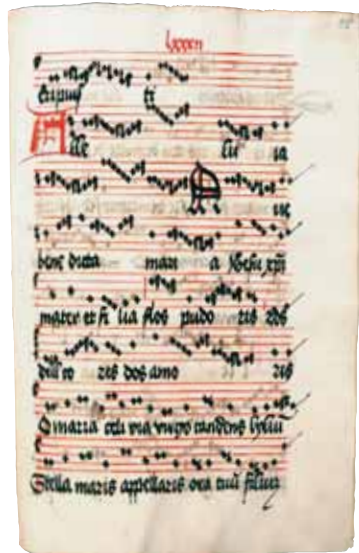 lxxxii
Alle lu ia
A ue
bene dicta mari a Jhesu xpi
mater et fi lia flos pudo ris ros
dul co ris dos amo ris
O maria celi via virgo candens liliū
Stella maris appellaris ora tuū filium